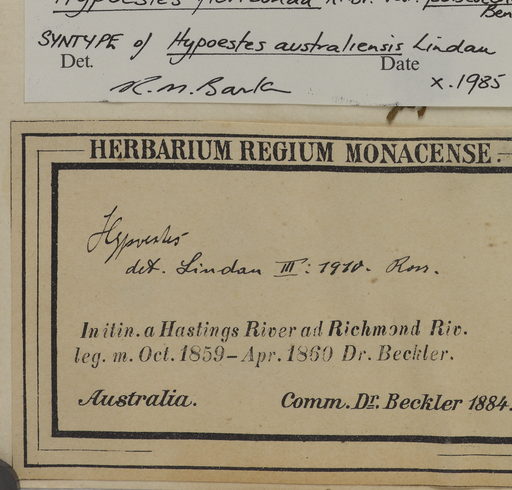 Hypoestes floribunda R.Br. var.
Ben
SYNTYPE of Hypoestes australiensis Lindau
Det. Date
R.M. Barker x.1985
HERBARIUM REGIUM MONACENSE.
Hypoestes
det. Lindau III: 1910. Ross.
In itin. a Hastings River ad Richmond Riv.
leg. m. Oct. 1859 – Apr. 1860 Dr. Beckler.
Australia. Comm. Dr. Beckler 1884.